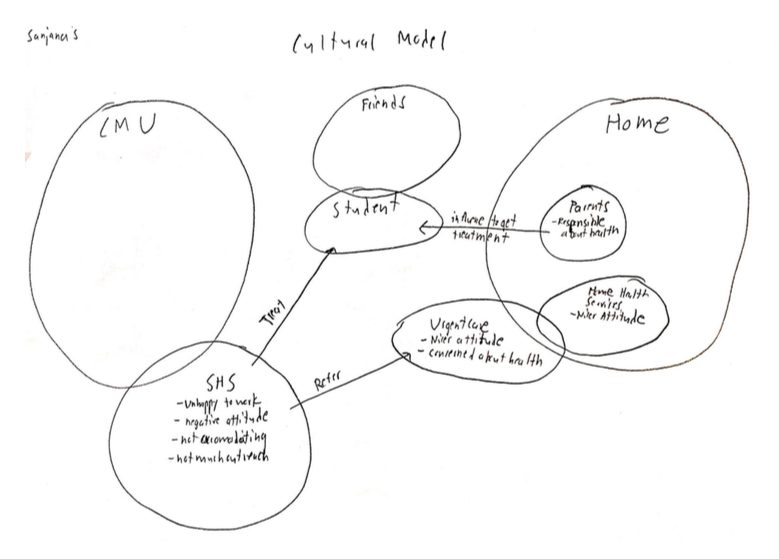 Sanjana's
Cultural Model
CMU
Friends
Home
Student
influence to get
treatment
Parents
-responsible
about health
Home Health
Services
-Nicer Attitude
Treat
Urgent care
- Nicer attitude
- concerned about health
Refer
SHS
-unhappy to work
- negative attitude
- not accomodating
- not much outreach